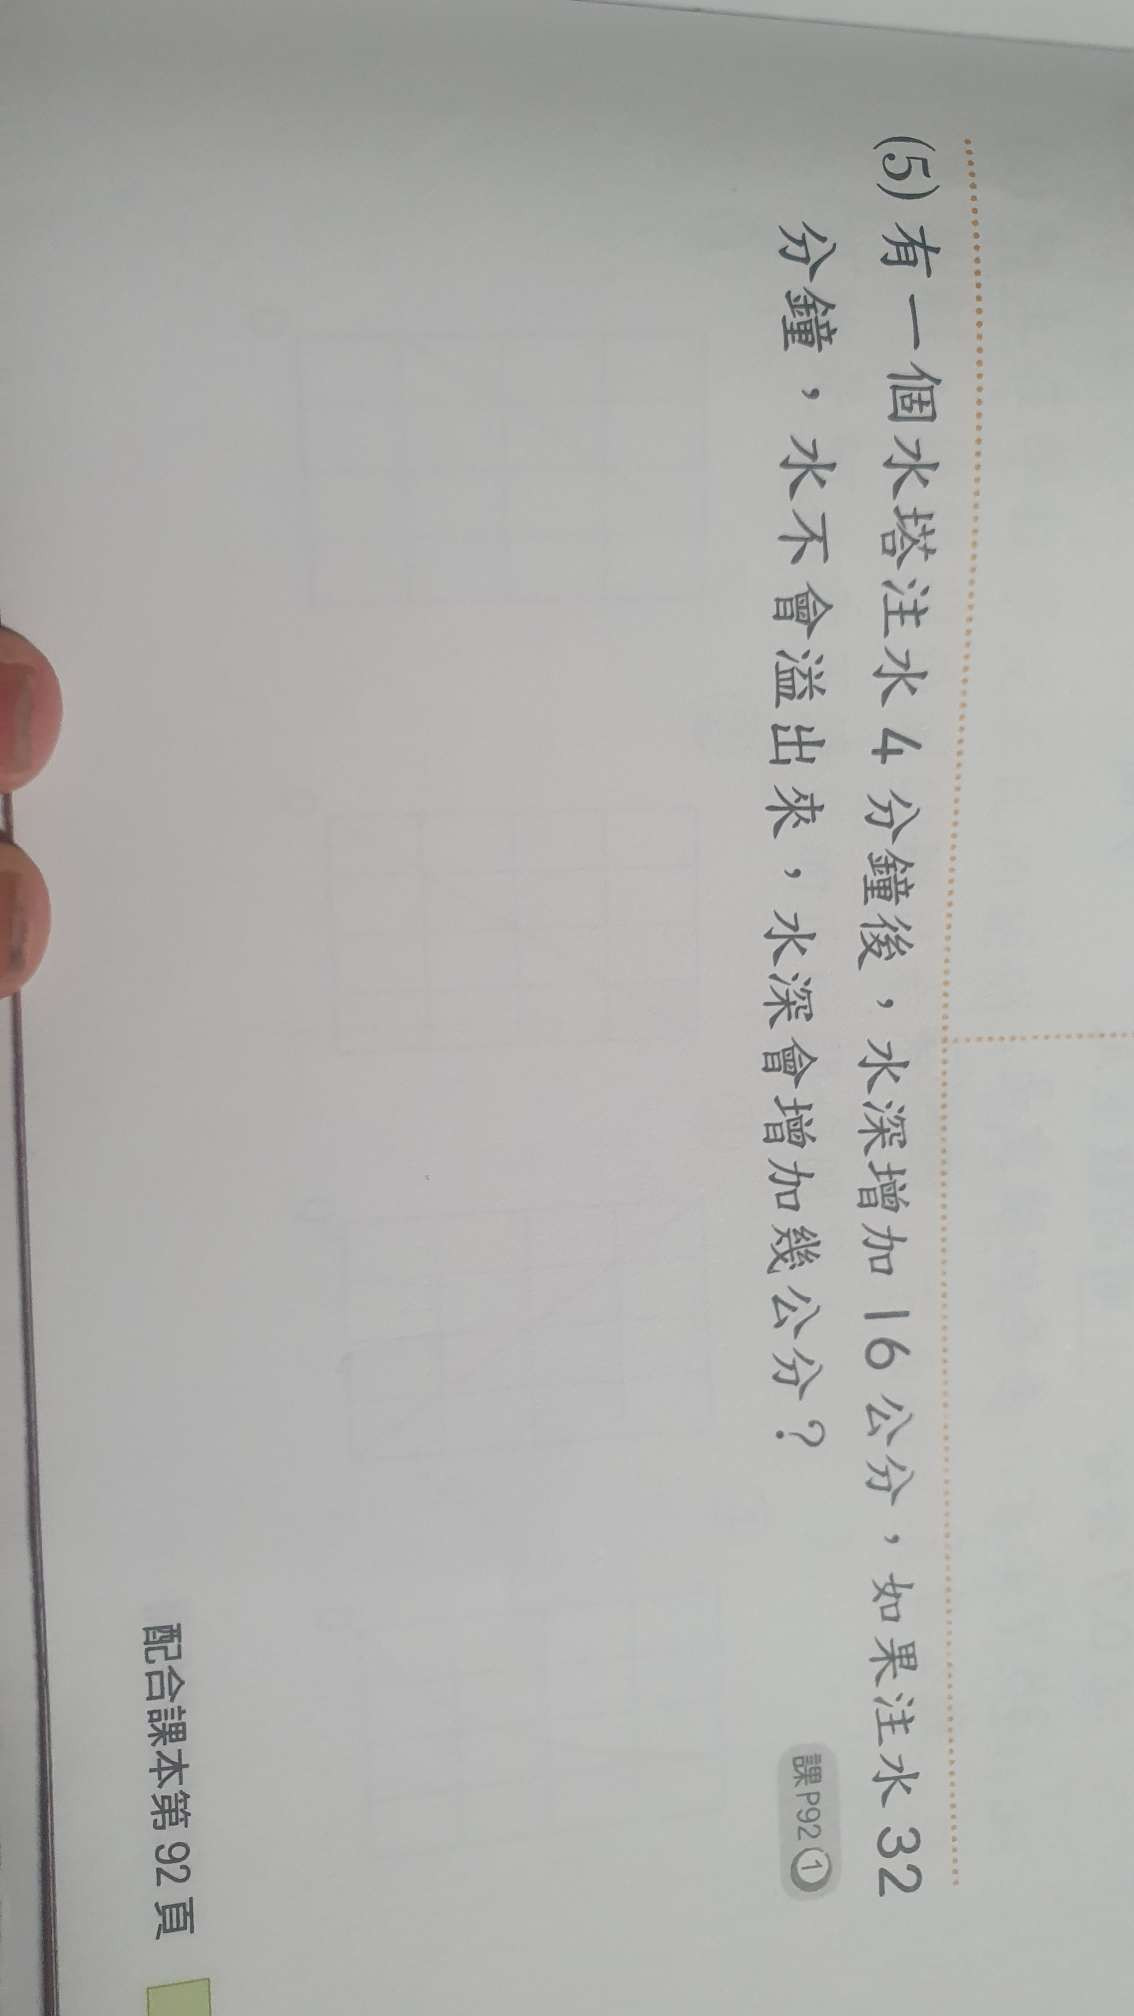 (5) 有一個水塔注水 4 分鐘後，水深增加 16 公分，如果注水 32
分鐘，水不會溢出來，水深會增加幾公分？
課 P92 ①
配合課本第 92 頁